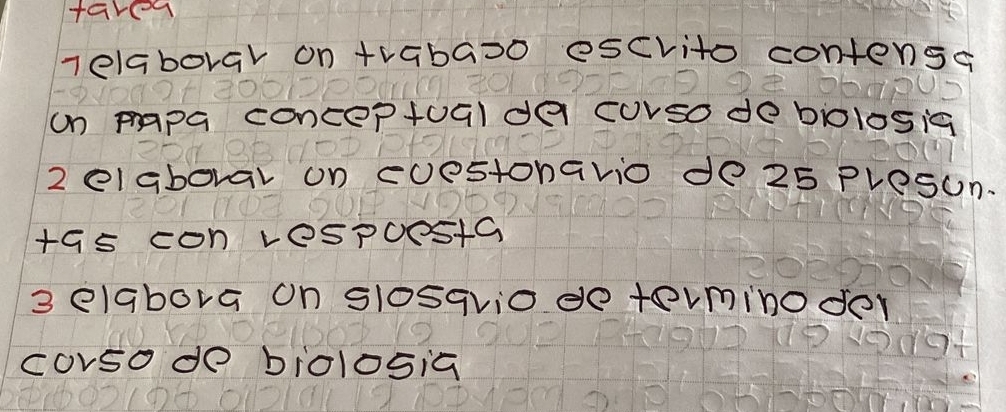 tarea
1 elaborar on trabajo escrito contenga
un mapa conceptual del curso de biologia
2 elaborar un cuestonario de 25 pregun-
tas con respuesta
3 elabora un glosario de termino del
curso de biologia